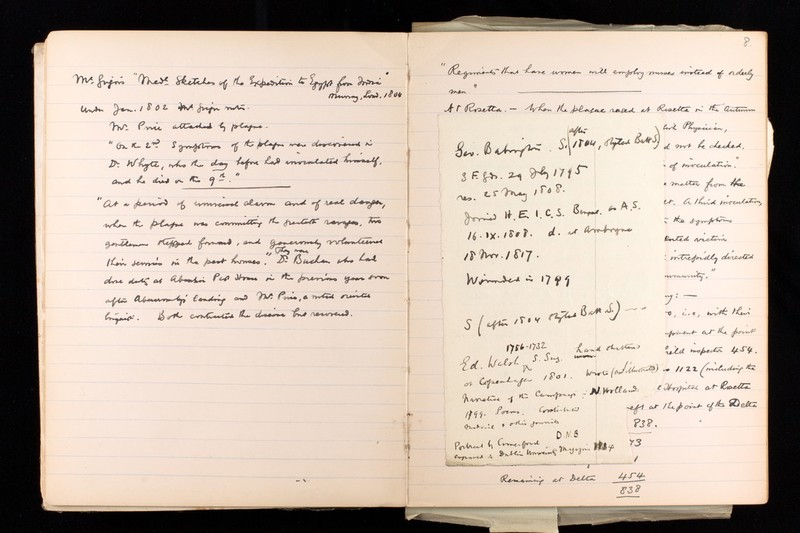 Mr. "Medl. Sketches of the Expedition to Egypt from India"
Murray, Lond. 1804
Under Jan. 1802 Mr.
Mr. Price attacked by plague.
"On the 2nd Symptoms of the plague were discovered in
Dr. Whyte, who the day before had inoculated himself,
and he died on the 9th."
"At a period of universal alarm and of real danger,
when the plague was committing the greatest ravages, two
gentlemen stepped forward, and generously volunteered
their services in the pest houses." They were Dr. Buchan who had
done duty at Aboukir Pest House in the previous year soon
after Abercromby's landing and Mr. Price, a noted
Both contracted the disease but recovered.
8
"Regiments that have women will employ nurses instead of orderly
men"
At Rosetta. — When the plague raged at Rosetta in the Autumn
Physician,
not be checked.
of inoculation."
matter from the
A third inoculation
the symptoms
victim
intrepidly directed
i.e., with their
at the point
field inspector 454.
1122 (including the
Hospital at Rosetta
left at the point of the Delta
838.
73
1
Remaining at Delta 454
838
Geo. Babington. S. (after 1804, styled Batt S)
3 F Gds. 29 July 1795
res. 25 May 1808.
Joined H.E.I.C.S. Bengal as A.S.
16.IX.1808. d. at Amboyna
18 Nov. 1817.
Wounded in 1799
S (after 1804 styled Batt S.)
1756-1832
Ed. Walsh S. Surg. hand shattered
at Copenhagen 1801. Wrote
Narrative of the Campaign: N. Holland
1799. Poems.
& other journals
D.N.B
Portrait by Comerford
in Dublin University Magazine 1834